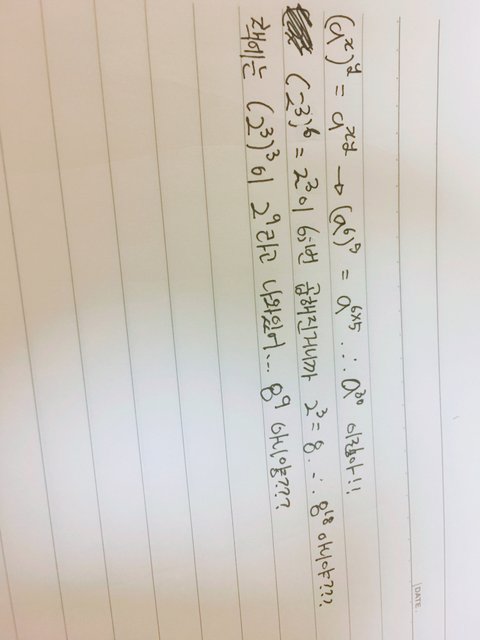 DATE.
(a^x)^y = a^xy → (a^6)^5 = a^6×5 ∴ a^30 이잖아!!
(2^3)^6 = 2^3이 6번 곱해진거니까 2^3 = 8 ∴ 8^18 아니야???
책에는 (2^3)^3이 2^9라고 나와있어... 8^9 아니야???